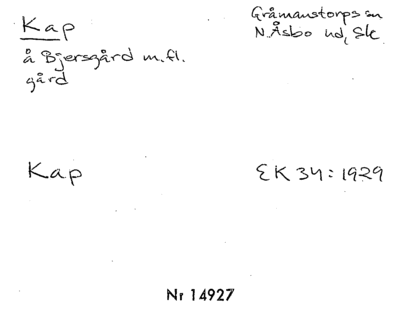 Kap
Gråmanstorps sn
N. Åsbo hd, Sk
å Bjersgård m.fl.
gård
Kap
EK 34:1929
Nr 14927